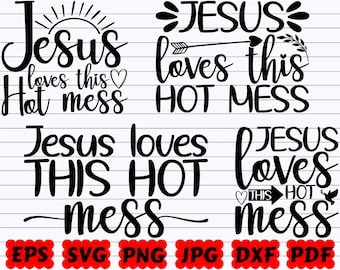 Jesus
loves this
Hot mess
JESUS
loves this
HOT MESS
Jesus loves
THIS HOT
mess
JESUS
loves
THIS HOT
mess
EPS SVG PNG JPG DXF PDF